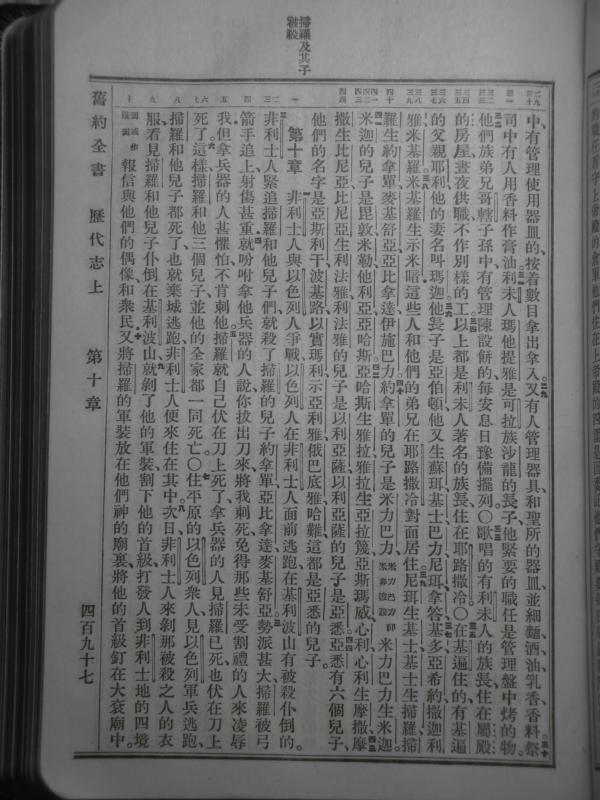 掃羅及其子
被殺
中、有管理使用器皿的、按着數目拿出拿入、又有人管理器具和聖所的器皿並細麵酒油乳香香料祭
司中有人用香料作膏油利未人瑪他提雅是可拉族沙龍的長子他緊要的職任是管理盤中烤的物。
他們族弟兄哥轄子孫中有管理陳設餅的每安息日豫備擺列〇歌唱的有利未人的族長住在屬殿
的房屋晝夜供職不作別樣的工以上都是利未人著名的族長住在耶路撒冷〇在基遍住的有基遍
的父親耶利他的妻名叫瑪迦他長子是亞伯頓他又生蘇珥基士巴力尼珥拿答基多亞希約撒迦利
雅米基羅米基羅生示米暗這些人和他們的弟兄在耶路撒冷對面居住尼珥生基士基士生掃羅掃
羅生約拿單麥基舒亞亞比拿達伊施巴力約拿單的兒子是米力巴力米力巴力即米非波設米力巴力生米迦。
米迦的兒子是毘敦米勒他利亞亞哈斯亞哈斯生雅拉雅拉生亞拉篾亞斯瑪威心利心利生摩撒摩
撒生比尼亞比尼亞生利法雅利法雅的兒子是以利亞薩以利亞薩的兒子是亞悉亞悉有六個兒子、
他們的名字是亞斯利干波基路以實瑪利示亞利雅俄巴底雅哈難這都是亞悉的兒子。
第十章 非利士人與以色列人爭戰以色列人在非利士人面前逃跑在基利波山有被殺仆倒的。
非利士人緊追掃羅和他兒子們就殺了掃羅的兒子約拿單亞比拿達麥基舒亞勢派甚大掃羅被弓
箭手追上射傷甚重就吩咐拿他兵器的人說你拔出刀來將我刺死免得那些未受割禮的人來凌辱
我但拿兵器的人甚懼怕不肯刺他掃羅就自己伏在刀上死了拿兵器的人見掃羅已死也伏在刀上
死了這樣掃羅和他三個兒子並他的全家都一同死亡〇住平原的以色列衆人見以色列軍兵逃跑、
掃羅和他兒子都死了也就棄城逃跑非利士人便來住在其中次日非利士人來剝那被殺之人的衣
服看見掃羅和他兒子仆倒在基利波山就剝了他的軍裝割下他的首級打發人到非利士地的四境
報信與他們的偶像和衆民又將掃羅的軍裝放在他們神的廟裏將他的首級釘在大袞廟中。
舊約全書 歷代志上 第十章 四百九十七